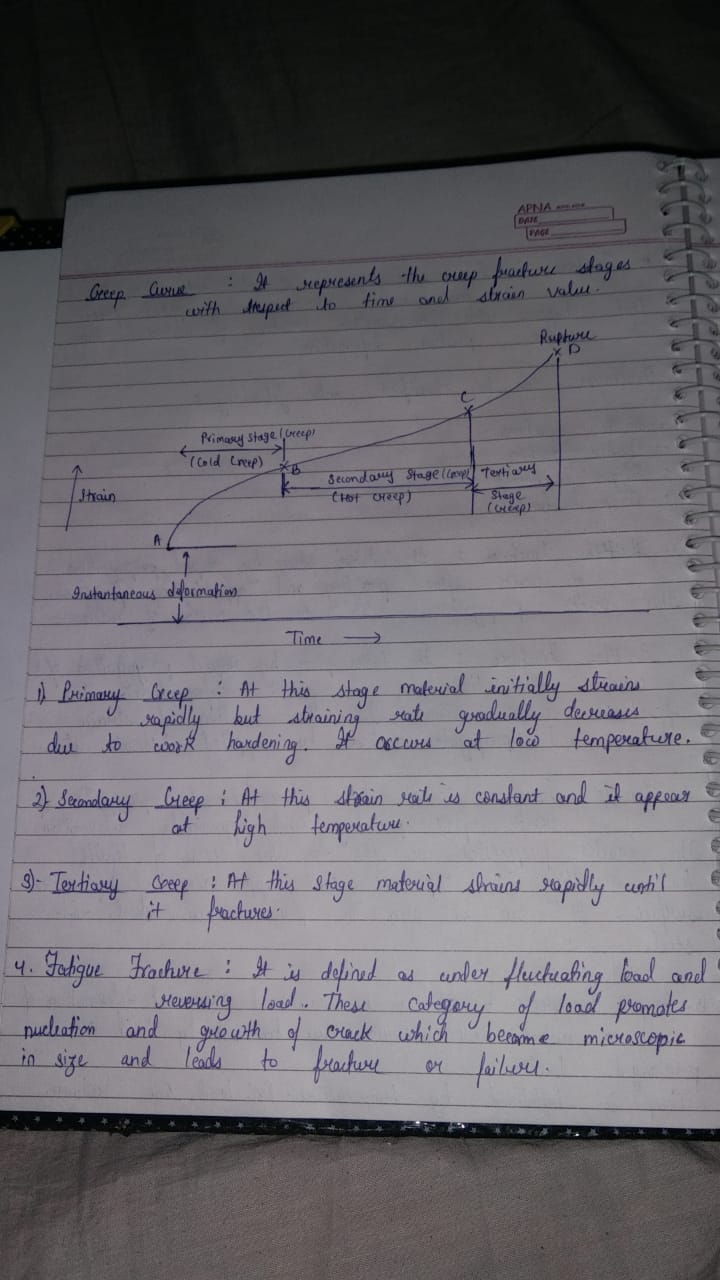 APNA
DATE
PAGE
Creep Curve : It represents the creep fracture stages
with respect to time and strain value.
Rupture
D
C
Primary Stage (Creep)
(Cold Creep)
B
Secondary Stage (Creep)
(Hot Creep)
Tertiary
Stage
(Creep)
Strain
A
Instantaneous deformation
Time
1) Primary Creep : At this stage material initially strains
rapidly but straining rate gradually decreases
due to work hardening. It occurs at low temperature.
2) Secondary Creep : At this strain rate is constant and it appear
at high temperature.
3)- Tertiary Creep : At this stage material strains rapidly until
it fractures.
4. Fatigue Fracture : It is defined as under fluctuating load and
reversing load. These category of load promotes
nucleation and growth of crack which become microscopic
in size and leads to fracture or failure.